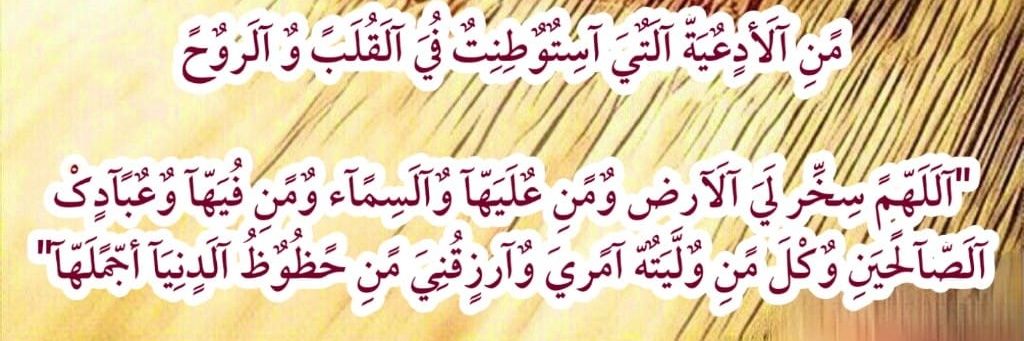 مًنِ آلَأدٍعُيَةّ آلَتٌيَ آسِتٌوٌطِنِتٌ فُيَ آلَقُلَبً وٌ آلَروٌحً
"آلَلَهّمً سِخِّر لَيَ آلَآرض وٌمًنِ عُلَيَهّآ وٌآلَسِمًآء وٌمًنِ فُيَهّآ وٌعُبًآدٍکْ
آلَصّآلَحًيَنِ وٌکْلَ مًنِ وٌلَّيَتٌهّ آمًريَ وٌآرزٍقُنِيَ مًنِ حًظُوٌظُ آلَدٍنِيَآ أجّمًلَهّآ"